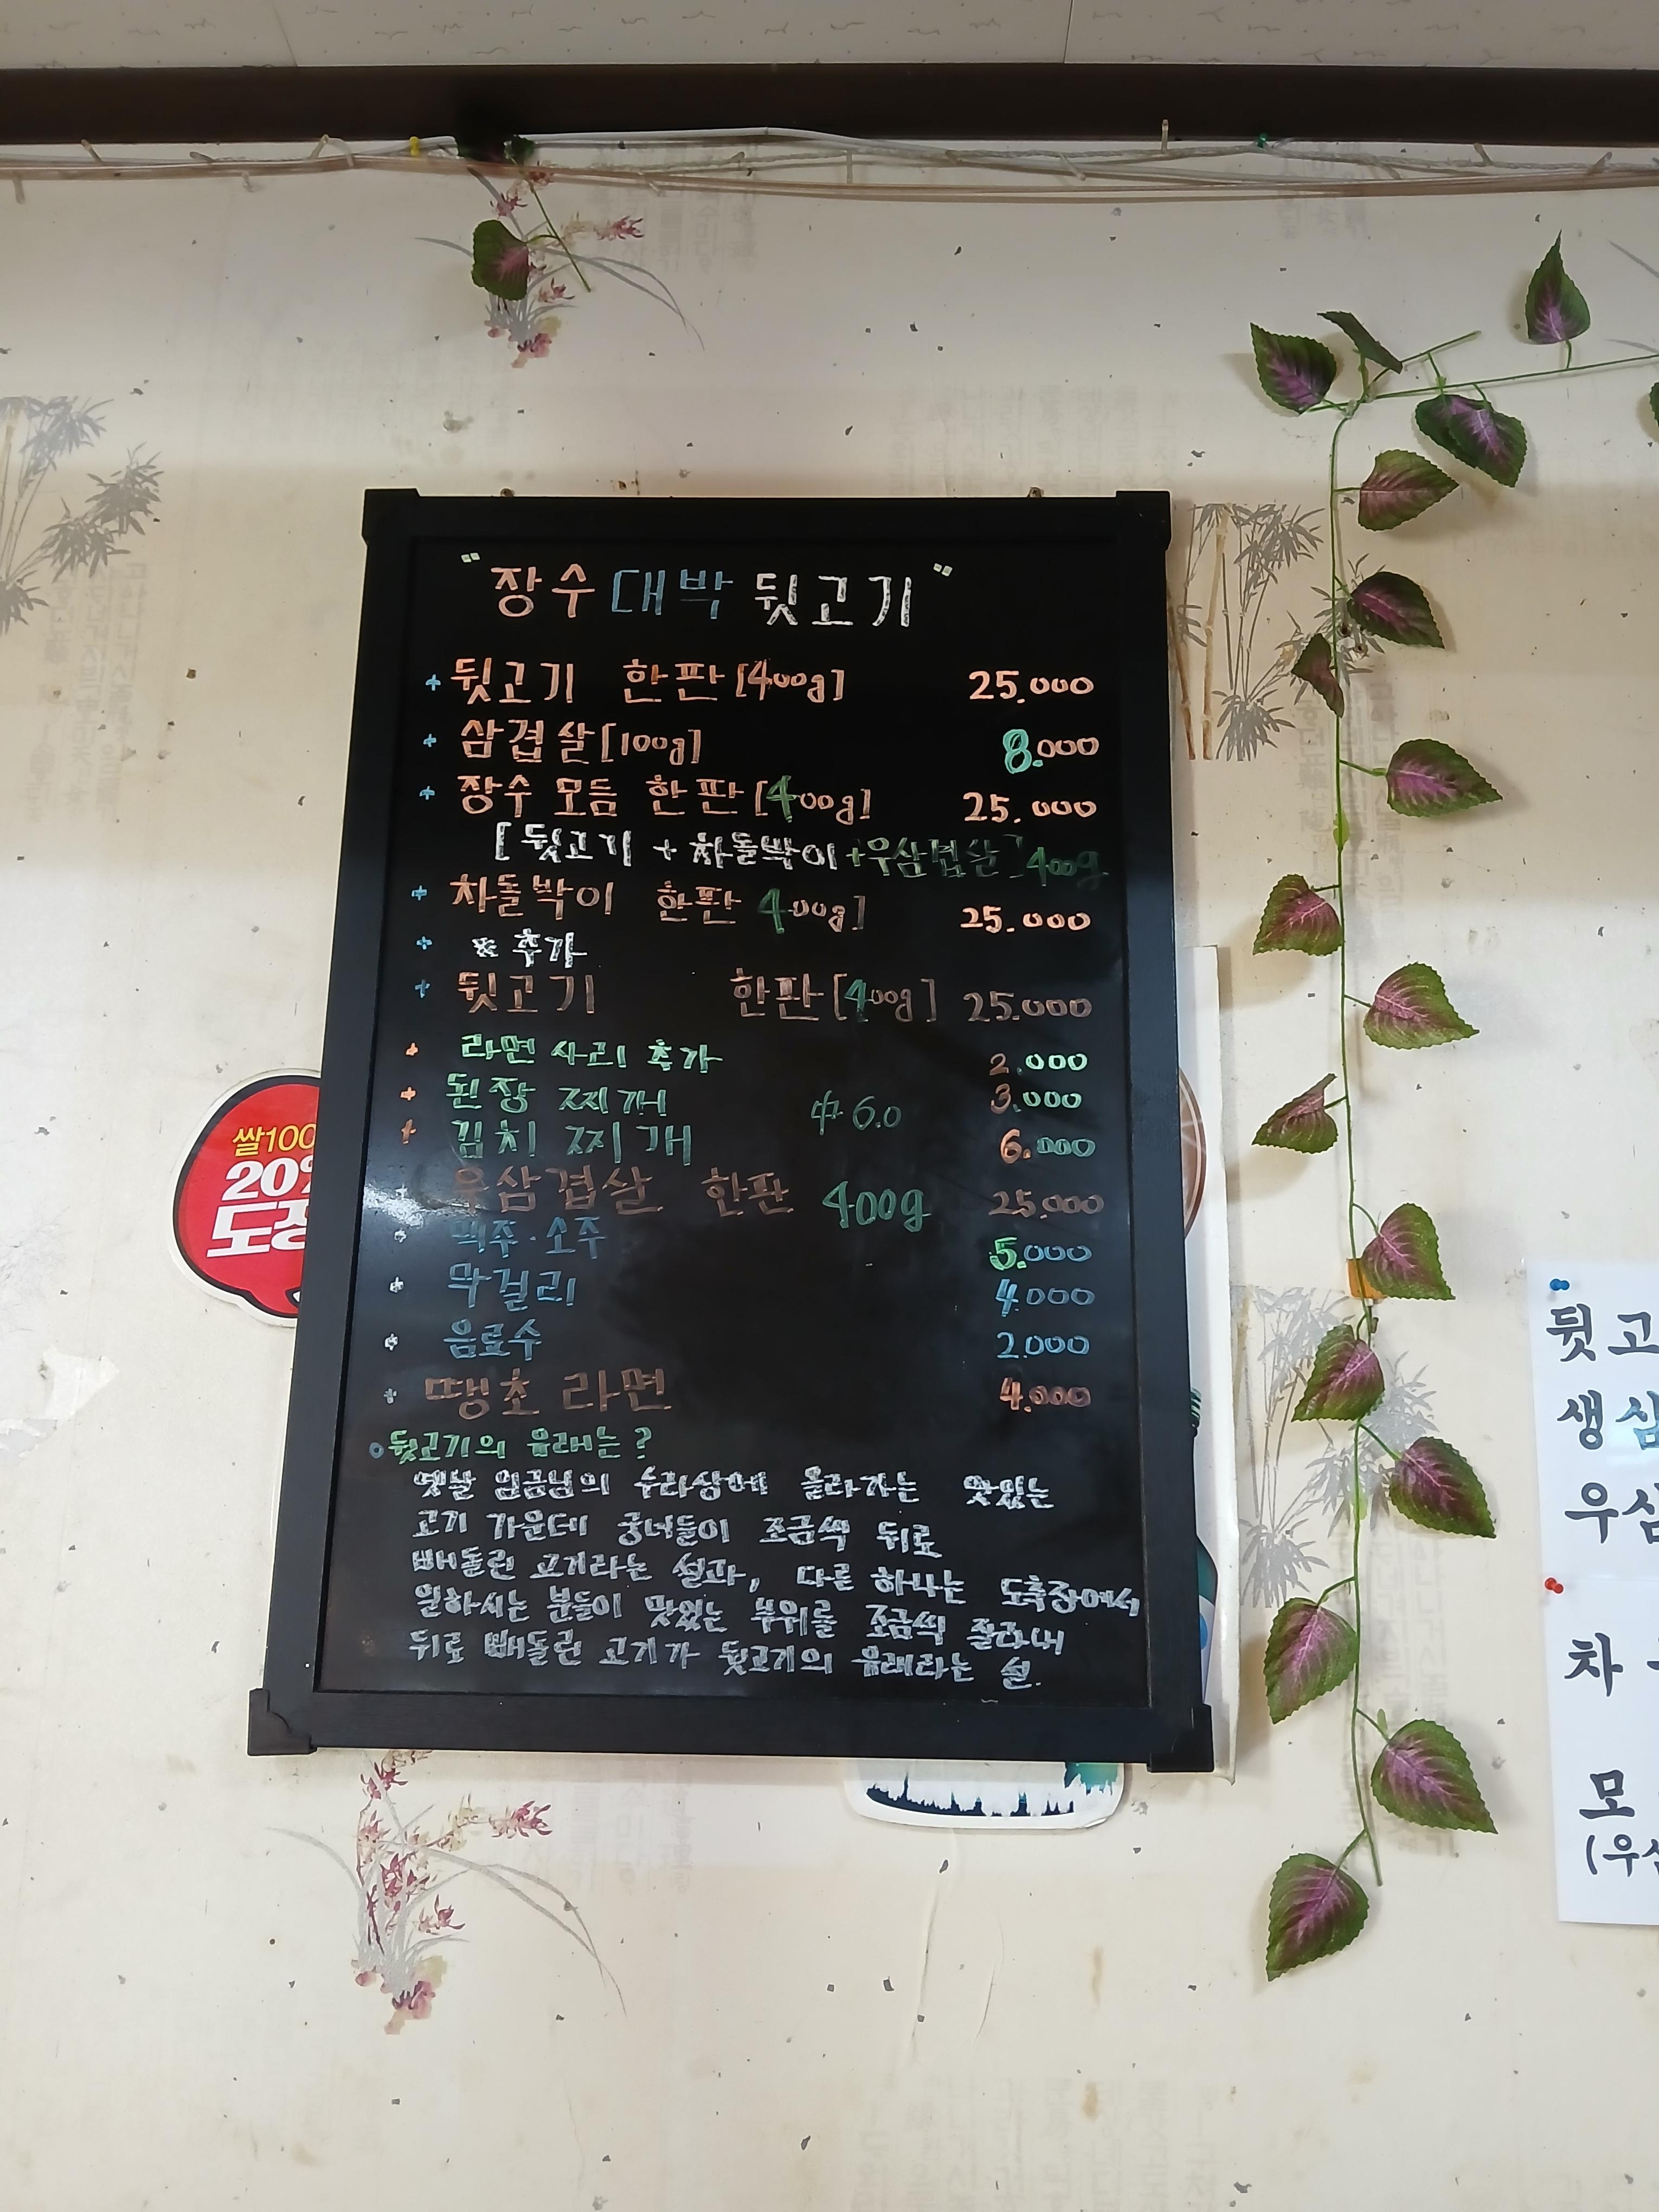 "장수대박 뒷고기"
+ 뒷고기 한판[400g] 25.000
+ 삼겹살[100g] 8.000
+ 장수 모듬 한판[400g] 25.000
[뒷고기 + 차돌박이 + 우삼겹살] 400g
+ 차돌박이 한판 400g] 25.000
+ ※ 추가
+ 뒷고기 한판[400g] 25.000
+ 라면 사리 추가 2.000
+ 된장 찌개 中 6.0 3.000
+ 김치 찌개 6.000
+ 우삼겹살 한판 400g 25.000
+ 맥주·소주 5.000
+ 막걸리 4.000
+ 음료수 2.000
+ 땡초 라면 4.000
○뒷고기의 유래는?
옛날 임금님의 수라상에 올라가는 맛있는
고기 가운데 궁녀들이 조금씩 뒤로
빼돌린 고기라는 설과, 다른 하나는 도축장에서
일하시는 분들이 맛있는 부위를 조금씩 잘라내
뒤로 빼돌린 고기가 뒷고기의 유래라는 설.
쌀100
20%
뒷고
생삼
우삼
차
모
(우삼